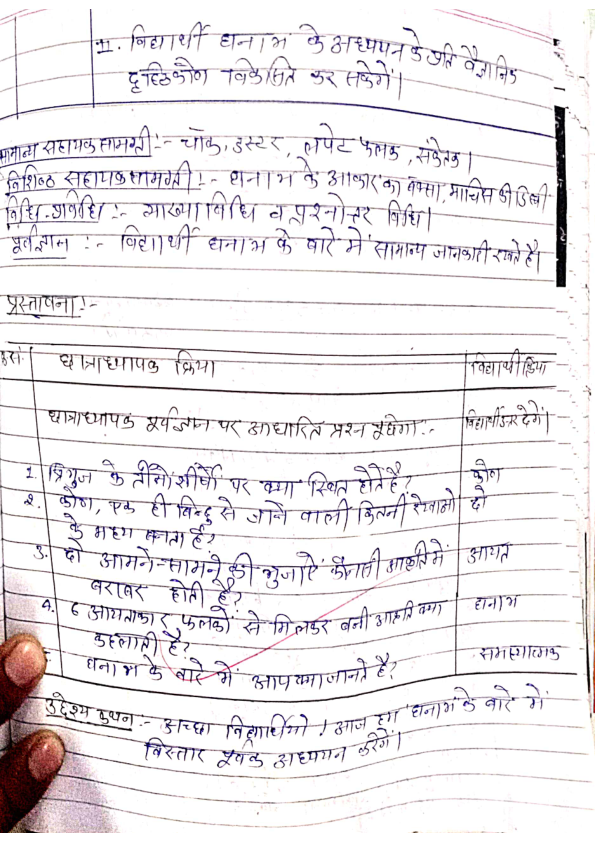 11. विद्यार्थी घनाभ के अध्ययन के प्रति वैज्ञानिक
दृष्टिकोण विकसित कर सकेगें।
सामान्य सहायक सामग्री :- चॉक, डस्टर, लपेट फलक, संकेतक।
विशिष्ठ सहायक सामग्री :- घनाभ के आकार का बॅक्सा, माचिस की डिब्बी
विधि-प्रविधि :- व्याख्या विधि व प्रश्नोत्तर विधि।
पूर्वज्ञान :- विद्यार्थी घनाभ के बारे में सामान्य जानकारी रखते है।
प्रस्तावना :-
क्र.सं. छात्राध्यापक क्रिया विद्यार्थी क्रिया
छात्राध्यापक पूर्वज्ञान पर आधारित प्रश्न पूछेगा :- विद्यार्थी उत्तर देगें।
1. त्रिभुज के तीनों शीर्षों पर क्या स्थित होते है? कोण
2. कोण, एक ही बिन्दु से जाने वाली कितनी रेखाओं दो
के मध्य बनता है?
3. दो आमने-सामने की भुजाऐं कौनसी आकृति में आयत
बराबर होती है?
4. 6 आयताकार फलकों से मिलकर बनी आकृति क्या घनाभ
कहलाती है?
घनाभ के बारे में आप क्या जानते है? समस्यात्मक
उद्देश्य कथन :- अच्छा विद्यार्थियो! आज हम घनाभ के बारे में
विस्तार पूर्वक अध्ययन करेगें।